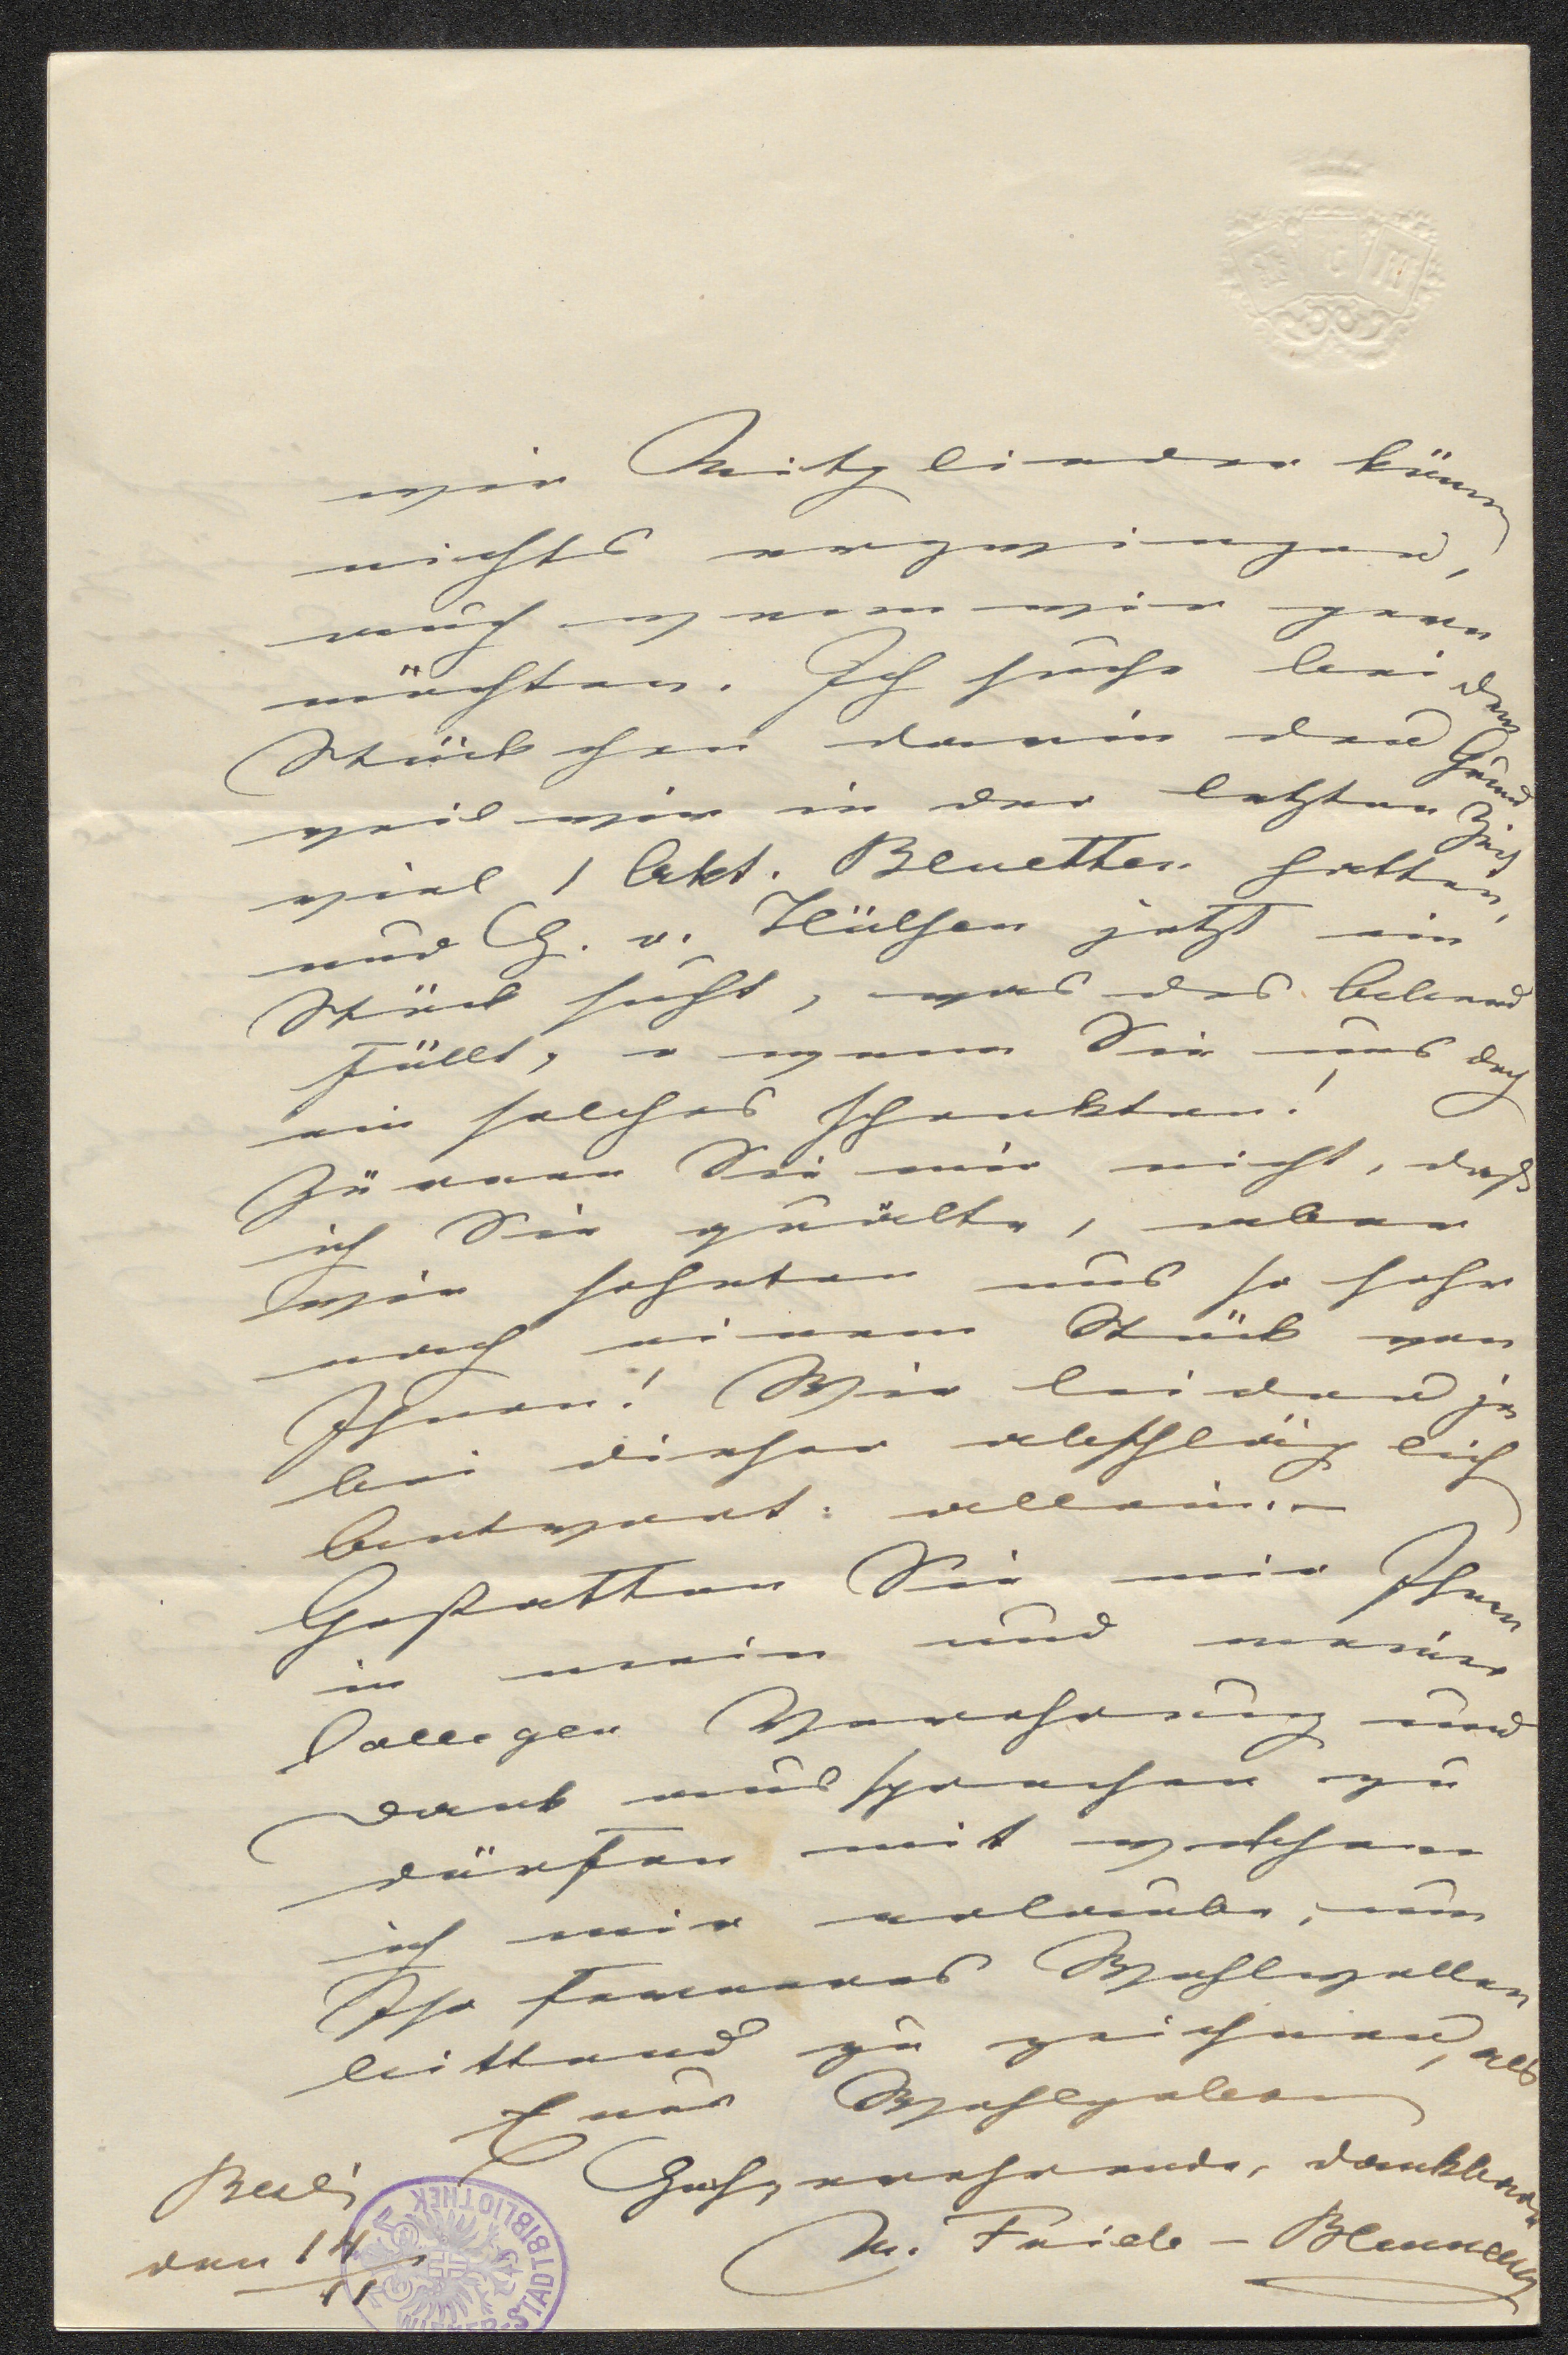 wir Mitglieder könn
nichts erzwingen,
auch wenn wir gern
möchten. Ich suche bei dem
Stückchen darin den Grund
weil wir in der letzten Zeit
viel 1 Akt. Bluetten hatten,
und G. v. Hülsen jetzt ein
Stück sucht, was des Abend
füllt, o wenn Sie uns doch
ein solches schenkten!
Zürnen Sie mir nicht, daß
ich Sie quälte, aber
wir sehnten uns so sehr
nach einem Stück von
Ihnen! Wir leiden ja
bei dieser abschläglich
Antwort: allein. –
Gestatten Sie mir Ihnen
in mein und meiner
Collegen Verehrung und
Dank aussprechen zu
dürfen mit welchem
ich mir erlaube, um
Ihr ferneres Wohlwollen
bittend zu zeichnen, als
Euer Wohlgeboren
Hochverehrende, dankbare
M. Frieb-Blumauer
Berlin
den 14/11
WIENER STADTBIBLIOTHEK